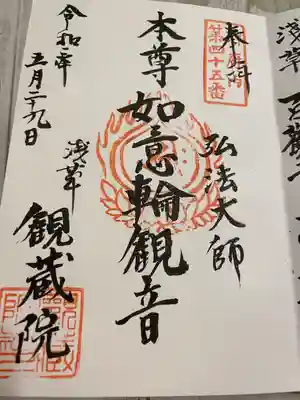 奉拝
第四十五番
弘法大師
本尊如意輪観音
浅草
観蔵院
令和二年
五月二十九日